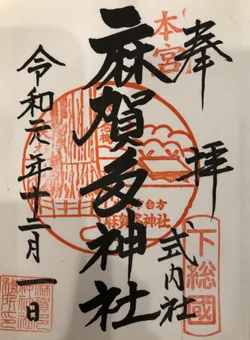 奉拝
本宮
式内社
下総國
麻賀多神社
台方
麻賀多神社
令和元年十二月一日